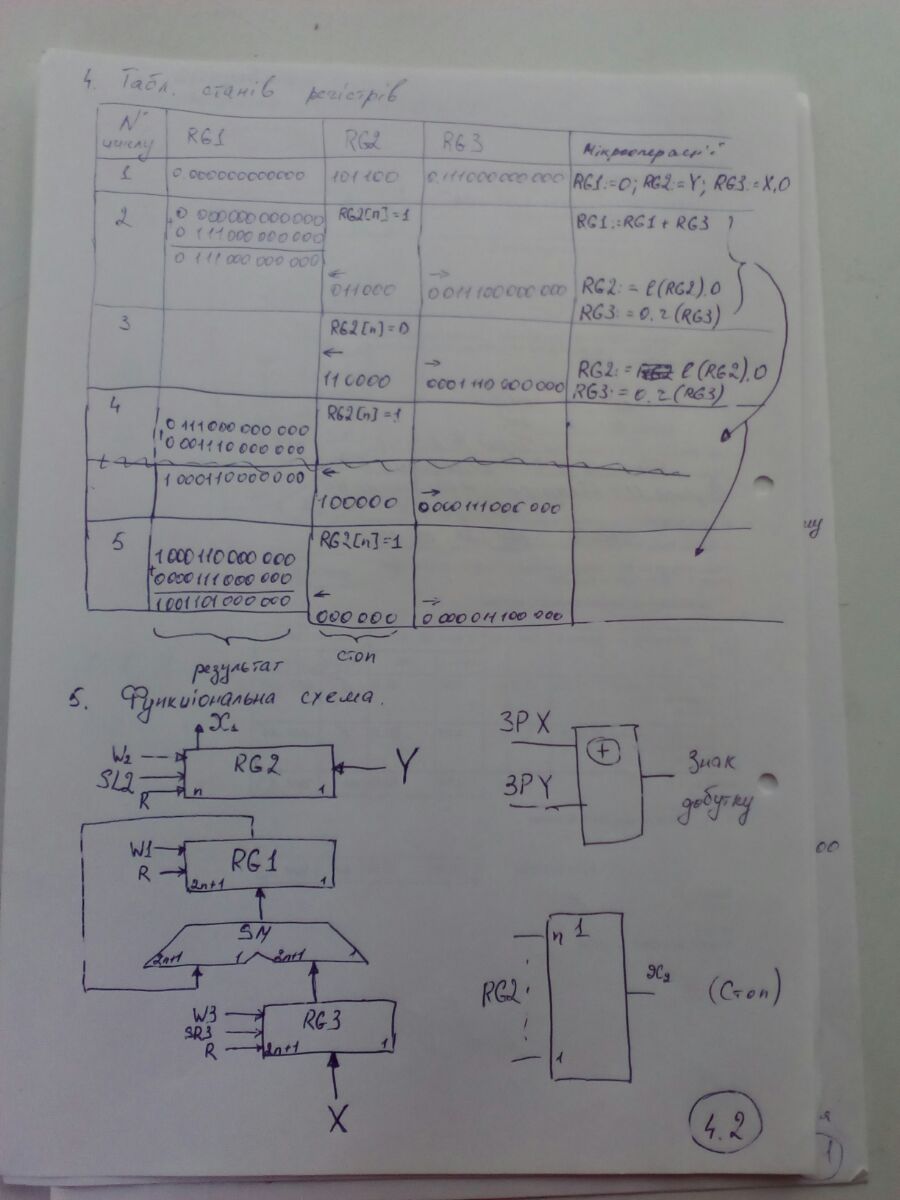 4. Табл. станів регістрів
№ циклу RG1 RG2 RG3 Мікрооперації
1 0.000000000000 101100 0.111000000000 RG1:=0; RG2:=Y; RG3:=X,0
2 0 000000000000 RG2[n]=1 RG1:=RG1+RG3
+
0 111000000000
0 111000000000
← 011000 → 0011100000000 RG2:=l(RG2).0
RG3:=0.r(RG3)
3 RG2[n]=0
← 110000 → 0001110000000 RG2:= l(RG2).0
RG3:=0.r(RG3)
4 RG2[n]=1
0 111000000000
+
0 001110000000
1000110000000 ←
100000 → 0000111000000
5 RG2[n]=1
1000110000000
+
0000111000000
1001101000000 ← 000000 → 0000011100000
результат стоп
5. Функціональна схема.
X₁
W₂ RG2 Y
SL2
R n 1
W1 RG1
R 2n+1 1
SM
2n+1 1 2n+1 1
W3 RG3
SR3
R 2n+1 1
X
ЗР X +
Знак
ЗР Y добутку
n 1
RG2 X₂ (Стоп)
1
4.2
му
оо
я
1)